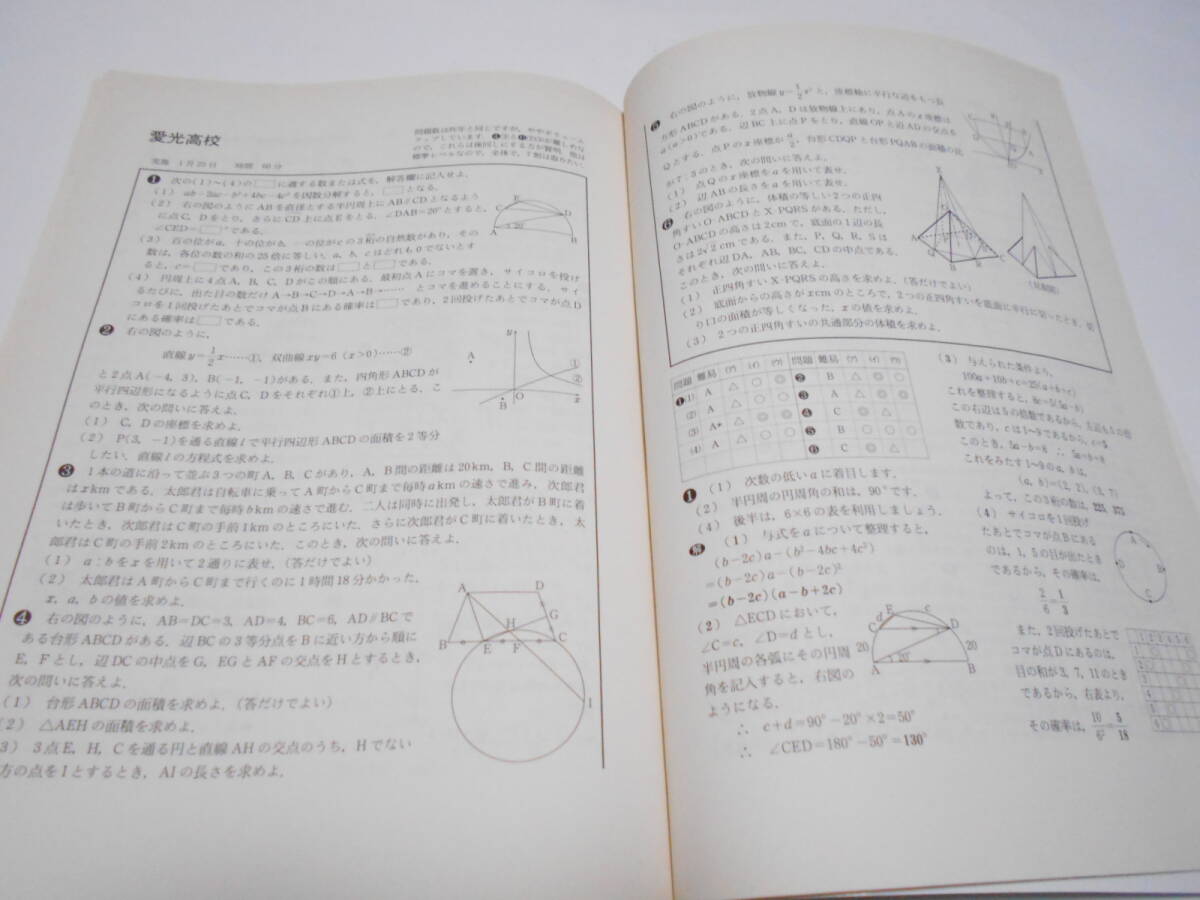 愛光高校
問題数は昨年と同じですが、ややボリューム
アップしています。
ので、これらは後回しにする方が賢明。他は
標準レベルなので、全体で、7割は取りたい。
実施 1月20日 時間 60分
❶ 次の(1)~(4)の□に適する数または式を、解答欄に記入せよ.
(1) を因数分解すると、□となる.
(2) 右の図のようにABを直径とする半円周上にAB∥CDとなるよう
に点C, Dをとり、さらにCD上に点Eをとる. ∠DAB=20°とすると,
∠CED=□°である.
(3) 百の位がa, 十の位がb, 一の位がcの3桁の自然数があり、その
数は、各位の数の和の25倍に等しい. a, b, cはどれも0でないとす
ると, c=□であり、この3桁の数は□と□である.
(4) 円周上に4点A, B, C, Dがこの順にある. 最初点Aにコマを置き、サイコロを投げ
るたびに、出た目の数だけA→B→C→D→A→B→…… とコマを進めることにする. サイ
コロを1回投げたあとでコマが点Bにある確率は□であり、2回投げたあとでコマが点D
にある確率は□である.
C E D A 20 B
❷ 右の図のように,
直線y=1/2x……①, 双曲線xy=6 (x>0)……②
と2点A(−4, 3), B(−1, −1)がある. また, 四角形ABCDが
平行四辺形になるように点C, Dをそれぞれ①上, ②上にとる. こ
のとき, 次の問いに答えよ.
(1) C, Dの座標を求めよ.
(2) P(3, −1)を通る直線lで平行四辺形ABCDの面積を2等分
したい. 直線lの方程式を求めよ.
y A ① ② B O x
❸ 1本の道に沿って並ぶ3つの町A, B, Cがあり, A, B間の距離は20km, B, C間の距離
はxkmである. 太郎君は自転車に乗ってA町からC町まで毎時akmの速さで進み, 次郎君
は歩いてB町からC町まで毎時bkmの速さで進む. 二人は同時に出発し, 太郎君がB町に着
いたとき, 次郎君はC町の手前1kmのところにいた. さらに次郎君がC町に着いたとき, 太
郎君はC町の手前2kmのところにいた. このとき, 次の問いに答えよ.
(1) a : bをxを用いて2通りに表せ. (答だけでよい)
(2) 太郎君はA町からC町まで行くのに1時間18分かかった.
x, a, bの値を求めよ.
❹ 右の図のように, AB=DC=3, AD=4, BC=6, AD∥BCで
ある台形ABCDがある. 辺BCの3等分点をBに近い方から順に
E, Fとし, 辺DCの中点をG, EGとAFの交点をHとするとき,
次の問いに答えよ.
(1) 台形ABCDの面積を求めよ. (答だけでよい)
(2) △AEHの面積を求めよ.
3) 3点E, H, Cを通る円と直線AHの交点のうち, Hでない
方の点をIとするとき, AIの長さを求めよ.
A D H G B E F C I
❺ 右の図のように, 放物線y=1/2x²と, 座標軸に平行な辺をもつ長
方形ABCDがある. 2点A, Dは放物線上にあり, 点Aのx座標は
a(a>0)である. 辺BC上に点Pをとり, 直線OPと辺ADの交点を
Qとする. 点Pのx座標がa/2, 台形CDQPと台形PQABの面積の比
が7:5のとき, 次の問いに答えよ.
(1) 点Qのx座標をaを用いて表せ.
(2) 辺ABの長さをaを用いて表せ.
❻ 右の図のように, 体積の等しい2つの正四
角すいO-ABCDとX-PQRSがある. ただし,
O-ABCDの高さは2cmで, 底面の1辺の長
さは2√2cmである. また, P, Q, R, Sは
それぞれ辺DA, AB, BC, CDの中点である.
このとき, 次の問いに答えよ.
(1) 正四角すいX-PQRSの高さを求めよ. (答だけでよい)
(2) 底面からの高さがxcmのところで, 2つの正四角すいを底面に平行に切ったとき, 切
り口の面積が等しくなった. xの値を求めよ.
(3) 2つの正四角すいの共通部分の体積を求めよ.
問題 難易 (ウ) (イ) (ア) 問題 難易 (ウ) (イ) (ア)
❶(1) A △ ○ ○ ❷ B △ ◎ ○
(2) A △ ○ ○ ❸ A △ ◎ ◎
(3) A* △ ◎ ◎ ❹ C △ ◎
(4) A △ ○ ○ ❺ B ○ ○
❻ C △ ◎
❶ (1) 次数の低いaに着目します.
(2) 半円周の円周角の和は, 90°です.
(4) 後半は, 6×6の表を利用しましょう.
解 (1) 与式をaについて整理すると,
(b−2c)a−(b²−4bc+4c²)
=(b−2c)a−(b−2c)²
=(b−2c)(a−b+2c)
(2) △ECDにおいて,
∠C=c, ∠D=dとし,
半円周の各弧にその円周
角を記入すると, 右図の
ようになる.
∴ c+d=90°−20°×2=50°
∴ ∠CED=180°−50°=130°
E d c C D 20 20 A 20° B
(3) 与えられた条件より,
100a+10b+c=25(a+b+c)
これを整理すると, 8c=5(5a−b)
この右辺は5の倍数であるから, 左辺も5の倍
数であり, cは1~9であるから, c=5
このとき, 5a−b=8 ∴ 5a=b+8
これをみたす1~9のa, bは,
(a, b)=(2, 2), (3, 7)
よって, この3桁の数は, 225, 375
(4) サイコロを1回投げ
たあとでコマが点Bにある
のは, 1, 5の目が出たとき
であるから, その確率は,
2/6=1/3
A B C D
また, 2回投げたあとで
コマが点Dにあるのは,
目の和が3, 7, 11のとき
であるから, 右表より,
その確率は, 10/6²=5/18